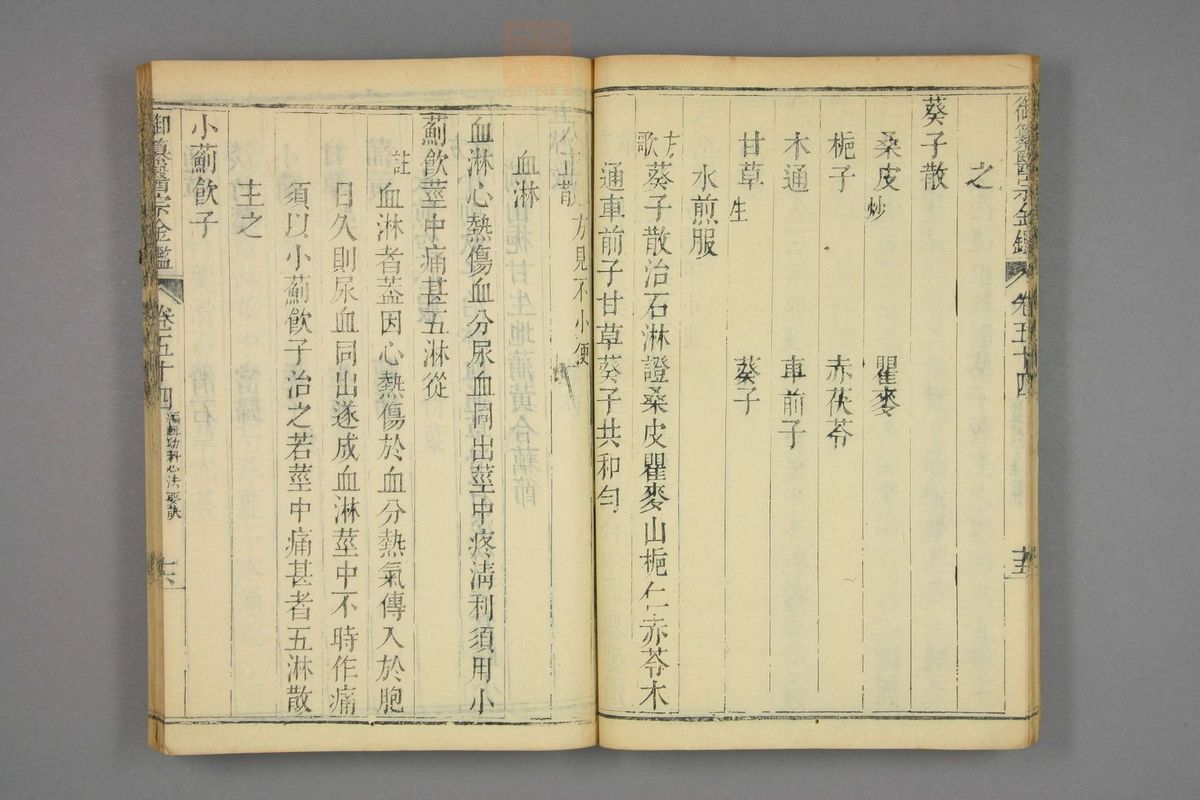 御纂醫宗金鑑 卷五十四 十五
之
葵子散
桑皮炒 瞿麥
梔子 赤茯苓
木通 車前子
甘草生 葵子
水煎服
方歌 葵子散治石淋證桑皮瞿麥山梔仁赤苓木
通車前子甘草葵子共和勻
八正散方見不小便
血淋
血淋心熱傷血分尿血同出莖中疼淸利須用小
薊飲莖中痛甚五淋從
註 血淋者蓋因心熱傷於血分熱氣傳入於胞
日久則尿血同出遂成血淋莖中不時作痛
須以小薊飲子治之若莖中痛甚者五淋散
主之
小薊飲子
御纂醫宗金鑑 卷五十四 編輯幼科心法要訣 十六